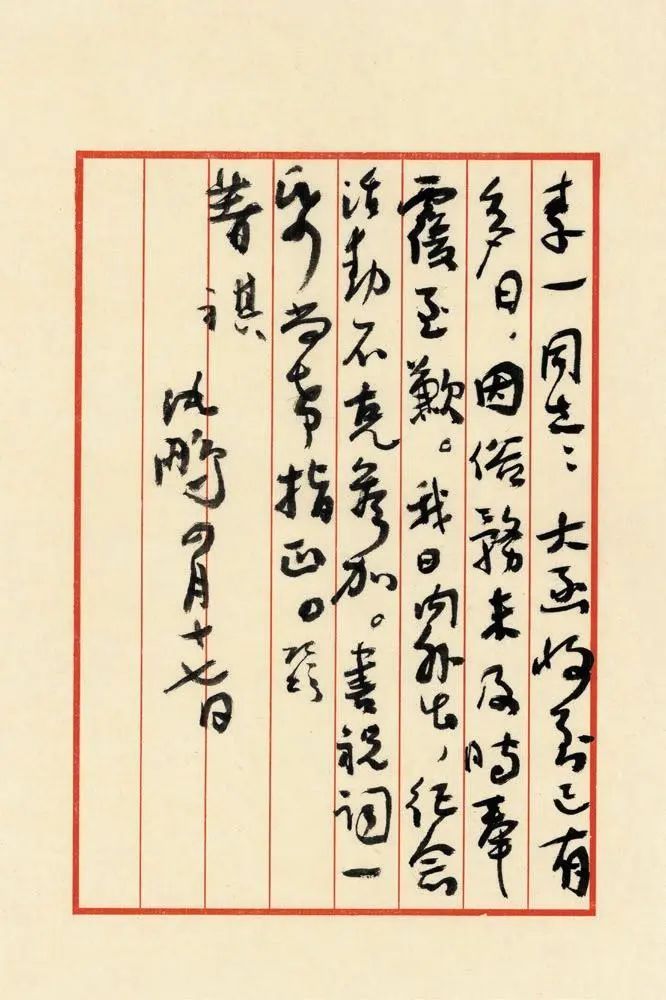 李一同志：大函收到已有
多日，因俗務未及時奉
覆至歉。我日内外出，纪念
活動不克參加。書祝詞一
帋尚希指正。頌
著祺
沈鵬四月十七日